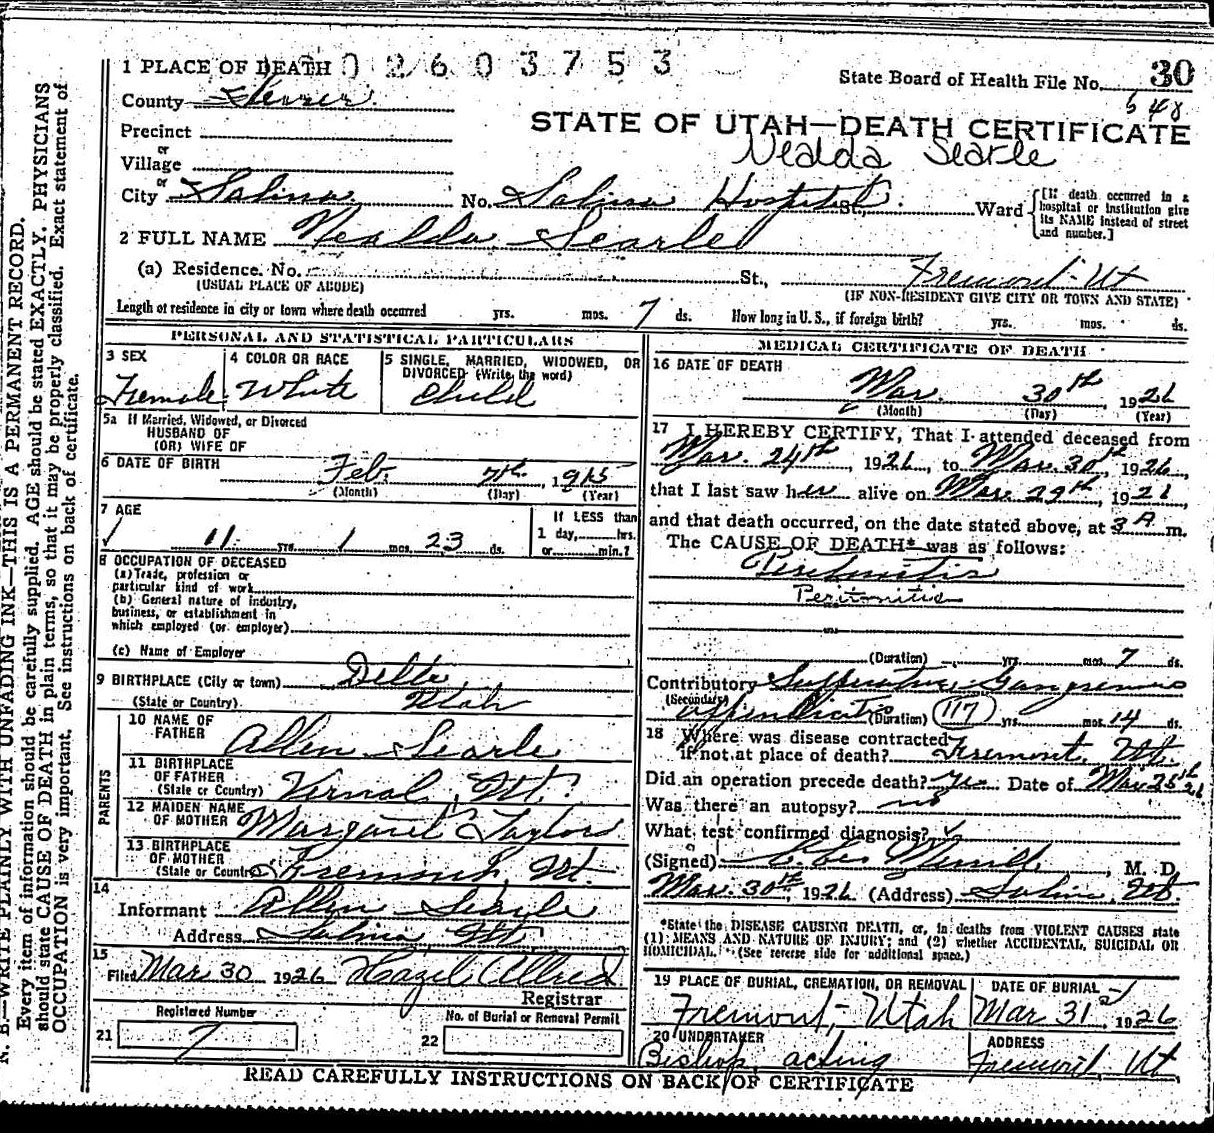 1 PLACE OF DEATH 0 2 6 0 3 7 5 3
State Board of Health File No. 30
548
County Sevier
STATE OF UTAH—DEATH CERTIFICATE
Precinct
Nealda Searle
or
Village
or
City Salina No. Salina Hospital St., Ward
[If death occurred in a hospital or institution give its NAME instead of street and number.]
2 FULL NAME Nealda Searle
(a) Residence. No. St., Fremont Ut
(USUAL PLACE OF ABODE) (IF NON-RESIDENT GIVE CITY OR TOWN AND STATE)
Length of residence in city or town where death occurred yrs. mos. 7 ds. How long in U. S., if foreign birth? yrs. mos. ds.
PERSONAL AND STATISTICAL PARTICULARS
3 SEX
Female
4 COLOR OR RACE
White
5 SINGLE, MARRIED, WIDOWED, OR
DIVORCED (Write the word)
Child
5a If Married, Widowed, or Divorced
HUSBAND OF
(OR) WIFE OF
6 DATE OF BIRTH Feb. 7th, 1915
(Month) (Day) (Year)
7 AGE
If LESS than
1 day, hrs.
or min.?
11 yrs. 1 mos. 23 ds.
8 OCCUPATION OF DECEASED
(a) Trade, profession or
particular kind of work
(b) General nature of industry,
business, or establishment in
which employed (or employer)
(c) Name of Employer
9 BIRTHPLACE (City or town) Delta
(State or Country) Utah
PARENTS
10 NAME OF
FATHER Allen Searle
11 BIRTHPLACE
OF FATHER
(State or Country) Vernal, Ut.
12 MAIDEN NAME
OF MOTHER Margaret Taylor
13 BIRTHPLACE
OF MOTHER
(State or Country) Fremont, Ut.
14
Informant Allen Searle
Address Salina Ut.
15
Filed Mar 30 1926 Hazel Allred
Registrar
Registered Number
21 7
No. of Burial or Removal Permit
22
MEDICAL CERTIFICATE OF DEATH
16 DATE OF DEATH
Mar. 30th, 1926
(Month) (Day) (Year)
17 I HEREBY CERTIFY, That I attended deceased from
Mar. 24th, 1926, to Mar. 30th, 1926,
that I last saw her alive on Mar. 29th, 1926
and that death occurred, on the date stated above, at 3 A m.
The CAUSE OF DEATH* was as follows:
Peritonitis
Peritonitis
(Duration) yrs. mos. 7 ds.
Contributory Suppurative Gangrenous
(Secondary) appendicitis (Duration) (117) yrs. mos. 14 ds.
18 Where was disease contracted
if not at place of death? Fremont, Ut.
Did an operation precede death? Yes Date of Mar 25th 26
Was there an autopsy? no
What test confirmed diagnosis?
(Signed) Merrill, M. D.
Mar. 30th, 1926 (Address) Salina, Ut.
*State the DISEASE CAUSING DEATH, or, in deaths from VIOLENT CAUSES state
(1) MEANS AND NATURE OF INJURY; and (2) whether ACCIDENTAL, SUICIDAL OR
HOMICIDAL. (See reverse side for additional space.)
19 PLACE OF BURIAL, CREMATION, OR REMOVAL
Fremont, Utah
DATE OF BURIAL
Mar 31, 1926
20 UNDERTAKER
Bishop acting
ADDRESS
Fremont, Ut
READ CAREFULLY INSTRUCTIONS ON BACK OF CERTIFICATE
N. B.—WRITE PLAINLY WITH UNFADING INK—THIS IS A PERMANENT RECORD.
Every item of information should be carefully supplied. AGE should be stated EXACTLY. PHYSICIANS
should state CAUSE OF DEATH in plain terms, so that it may be properly classified. Exact statement of
OCCUPATION is very important. See instructions on back of certificate.